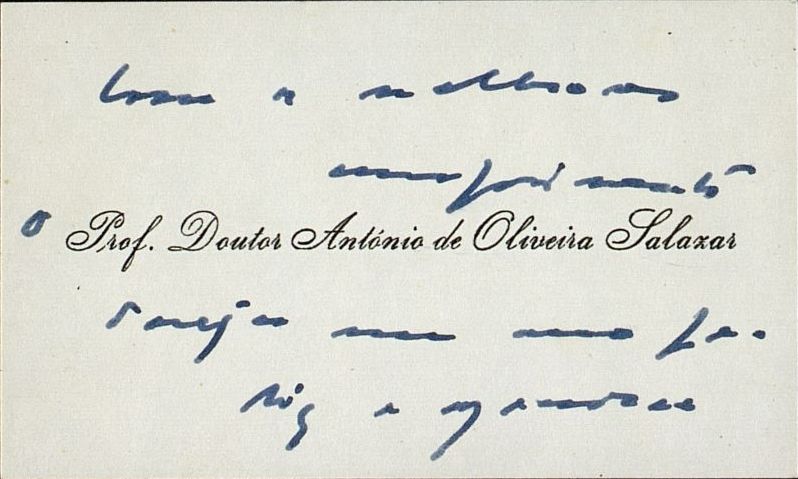 com os melhores
cumprimentos
o Prof. Doutor António de Oliveira Salazar
deseja um ano
e agradece